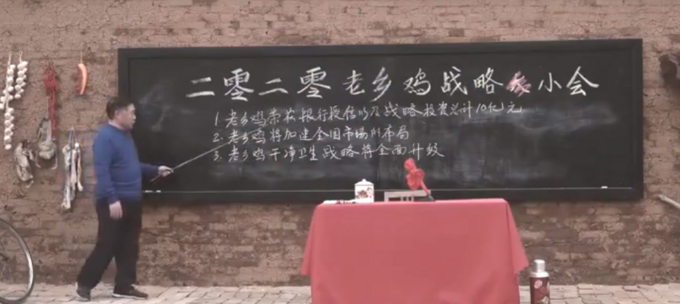 二零二零老乡鸡战略小会
1.老乡鸡荣获银行授信以及战略投资总计10亿元
2.老乡鸡将加速全国市场的布局
3.老乡鸡干净卫生战略将全面升级